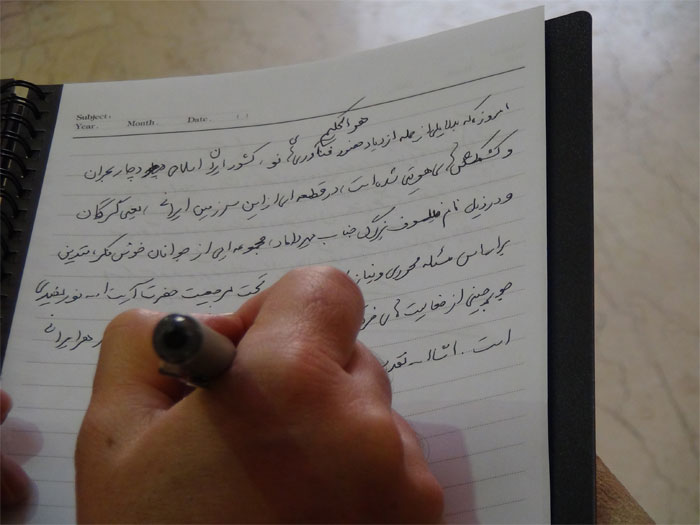 Subject:
Year. Month. Date. ( )
هو الحکیم
امروز که بدلایلی از جمله ازدیاد هنر و فنآوری های نو، کشور ایران اسلامی دچار بحران
و کشمکش های هویتی شده است، در قطعه ای از این سرزمین ایرانی، یعنی گرگان
و در ذیل نام فیلسوف بزرگ جناب میرداماد، مجموعه ای از جوانان خوش فکر، متدین
بر اساس مسئله محوری و نیاز تحت مرجعیت حضرت آیت ا... نورمفیدی
خوبی از فعالیت های هر ایرانی
است. انشاا...